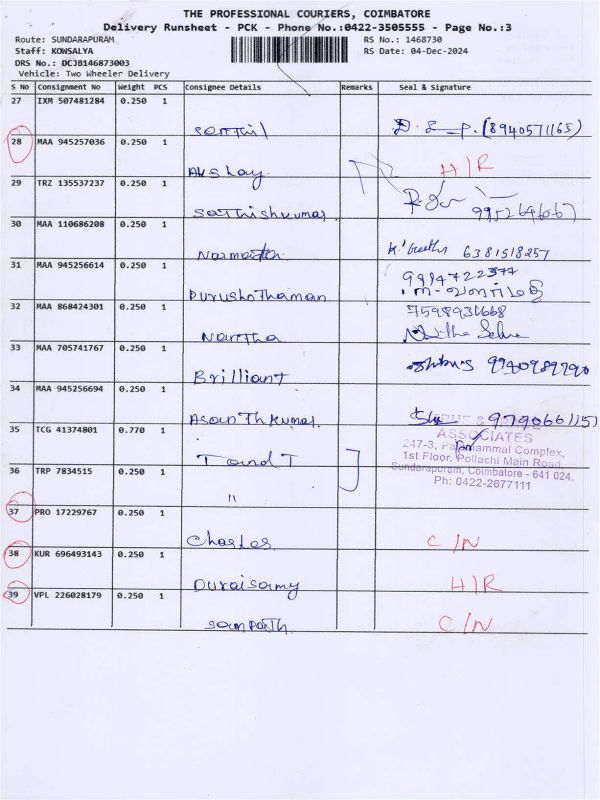 THE PROFESSIONAL COURIERS, COIMBATORE
Delivery Runsheet - PCK - Phone No.:0422-3505555 - Page No.:3
Route: SUNDARAPURAM RS No.: 1468730
Staff: KOWSALYA RS Date: 04-Dec-2024
DRS No.: DCJB146873003
Vehicle: Two Wheeler Delivery
S No Consignment No Weight PCS Consignee Details Remarks Seal & Signature
27 IXM 507481284 0.250 1
Senthil (8940571165)
28 MAA 945257036 0.250 1 H/R
Akshay
29 TRZ 135537237 0.250 1
Sathishkumar 9952646067
30 MAA 110686208 0.250 1
6381518257
31 MAA 945256614 0.250 1 9994722377
Purushothaman
32 MAA 868424301 0.250 1 7598931668
33 MAA 705741767 0.250 1
Brilliant
34 MAA 945256694 0.250 1
35 TCG 41374801 0.770 1 ASSOCIATES
247-3, Complex,
TandT 1st Floor, Pollachi Main Road,
36 TRP 7834515 0.250 1 Sundarapuram, Coimbatore - 641 024.
Ph: 0422-2677111
"
37 PRO 17229767 0.250 1
Charles C/N
38 KUR 696493143 0.250 1
Duraisamy H/R
39 VPL 226028179 0.250 1
Sampath C/N